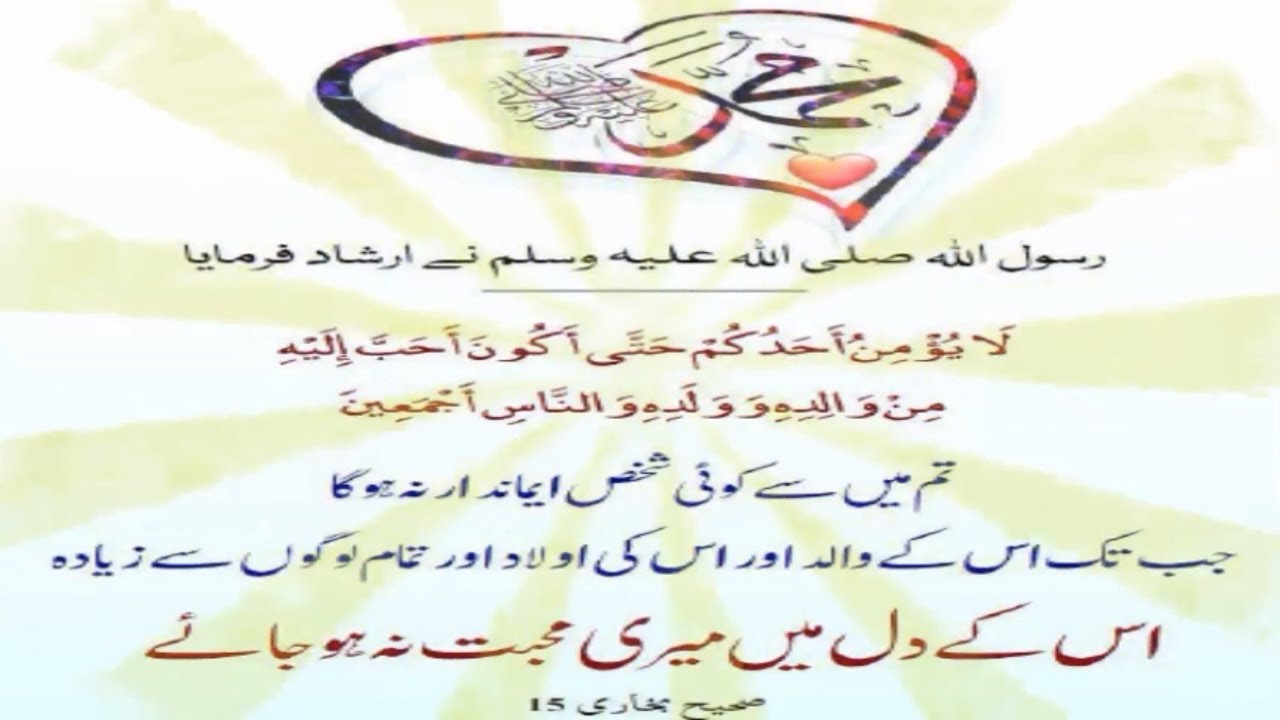 محمد
صلى الله عليه وسلم
رسول الله صلى الله عليه وسلم نے ارشاد فرمایا
لَا يُؤْمِنُ أَحَدُكُمْ حَتَّى أَكُونَ أَحَبَّ إِلَيْهِ
مِنْ وَالِدِهِ وَوَلَدِهِ وَالنَّاسِ أَجْمَعِينَ
تم میں سے کوئی شخص ایماندار نہ ہوگا
جب تک اس کے والد اور اس کی اولاد اور تمام لوگوں سے زیادہ
اس کے دل میں میری محبت نہ ہو جائے
صحیح بخاری 15